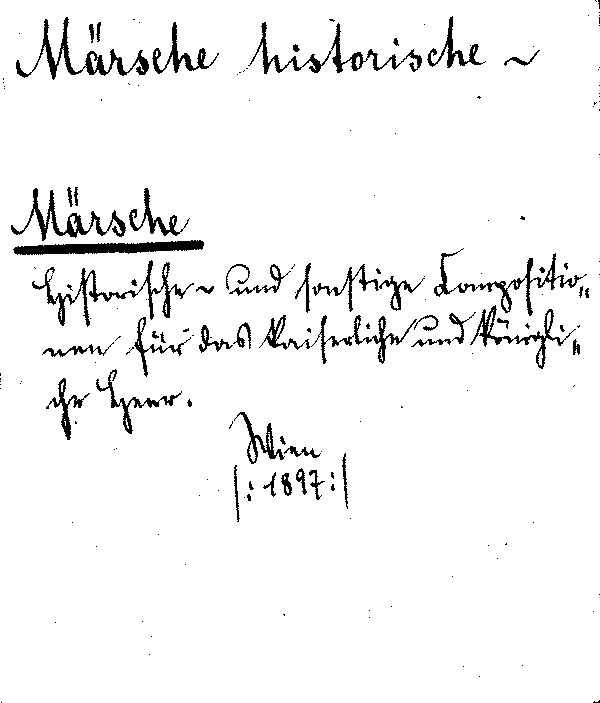 Märsche historische ~
Märsche
Historische ~ und sonstige Compositio„
nen für das kaiserliche und königli„
che Heer.
Wien
|: 1897 :|